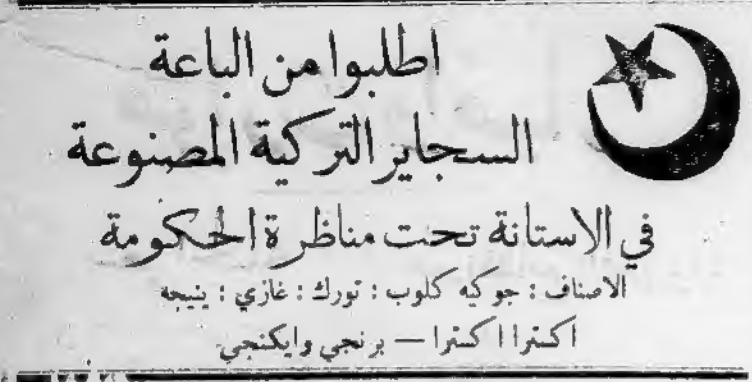 اطلبوا من الباعة
السجاير التركية المصنوعة
في الاستانة تحت مناظرة الحكومة
الاصناف : جوكيه كلوب : تورك : غازي : ينيجه
اكسترا اكسترا — برنجي وايكنجي